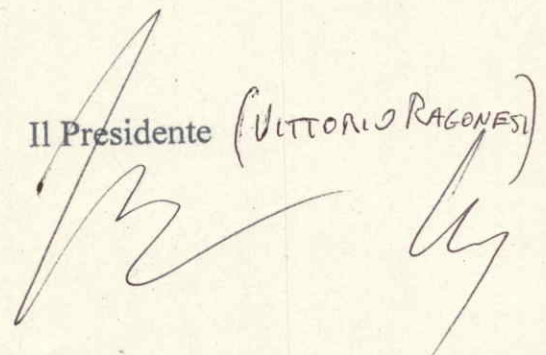 Il Presidente (VITTORIO RAGONESI)